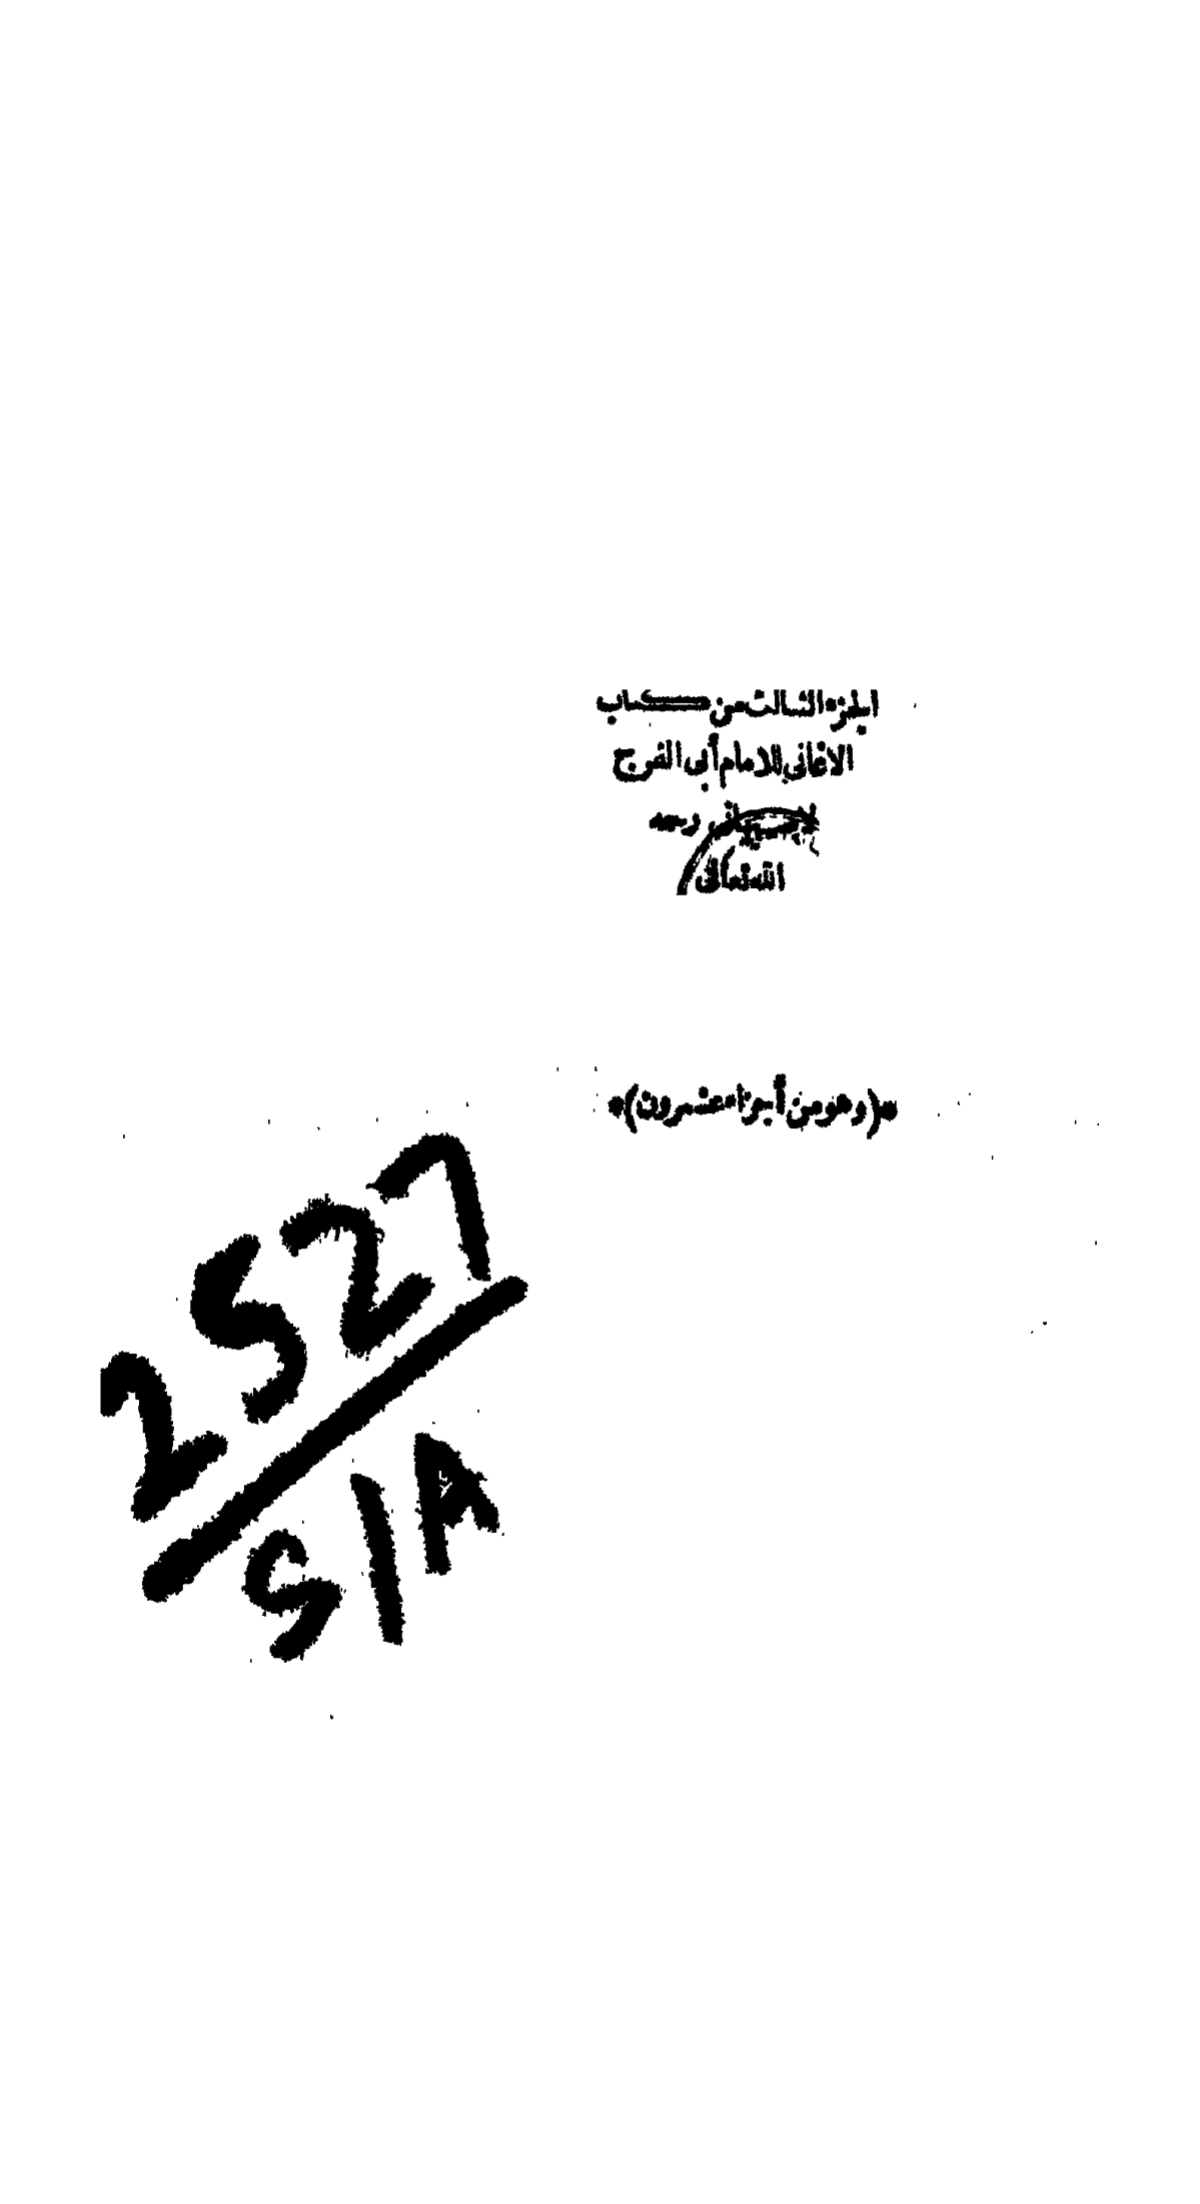 الجزء الثالث من كتاب
الاغاني للامام أبي الفرج
الاصبهاني رحمه
الله تعالى
*(وهو من أجزاء عشرون)*
2527
S/A